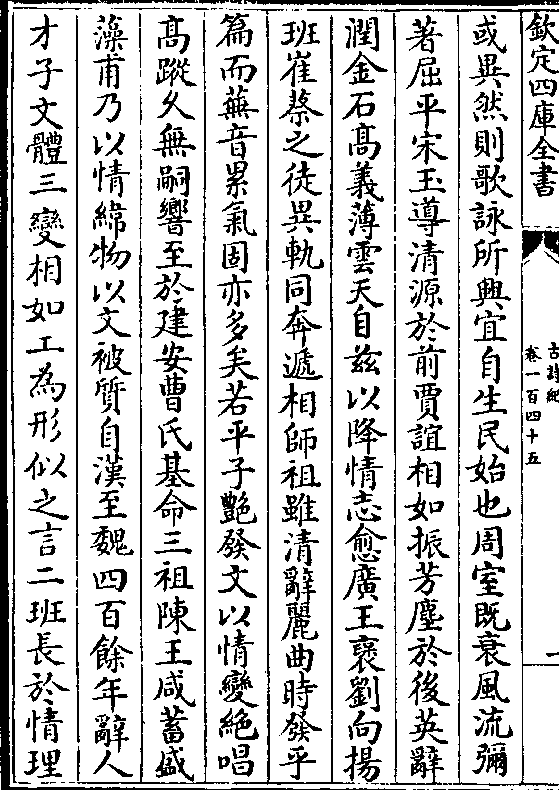 欽定四庫全書
古詩紀
卷一百四十五
一
或異然則歌詠所興宜自生民始也周室既衰風流彌
著屈平宋玉導清源於前賈誼相如振芳塵於後英辭
潤金石髙義薄雲天自兹以降情志愈廣王襃劉向揚
班崔蔡之徒異軌同奔遞相師祖雖清辭麗曲時發乎
篇而蕪音累氣固亦多矣若平子艶發文以情變絶唱
髙蹤久無嗣響至於建安曹氏基命三祖陳王咸蓄盛
藻甫乃以情緯物以文被質自漢至魏四百餘年辭人
才子文體三變相如工為形似之言二班長於情理